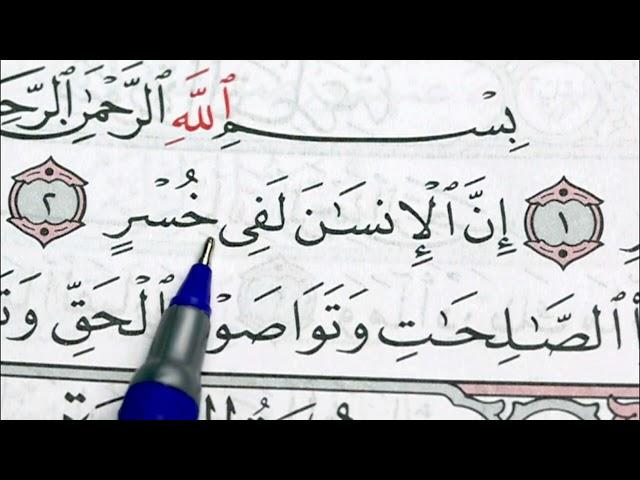 بِسْمِ ٱللَّهِ ٱلرَّحْمَٰنِ
١ إِنَّ ٱلْإِنسَٰنَ لَفِى خُسْرٍ ٢
ٱلصَّٰلِحَٰتِ وَتَوَاصَوْا۟ بِٱلْحَقِّ